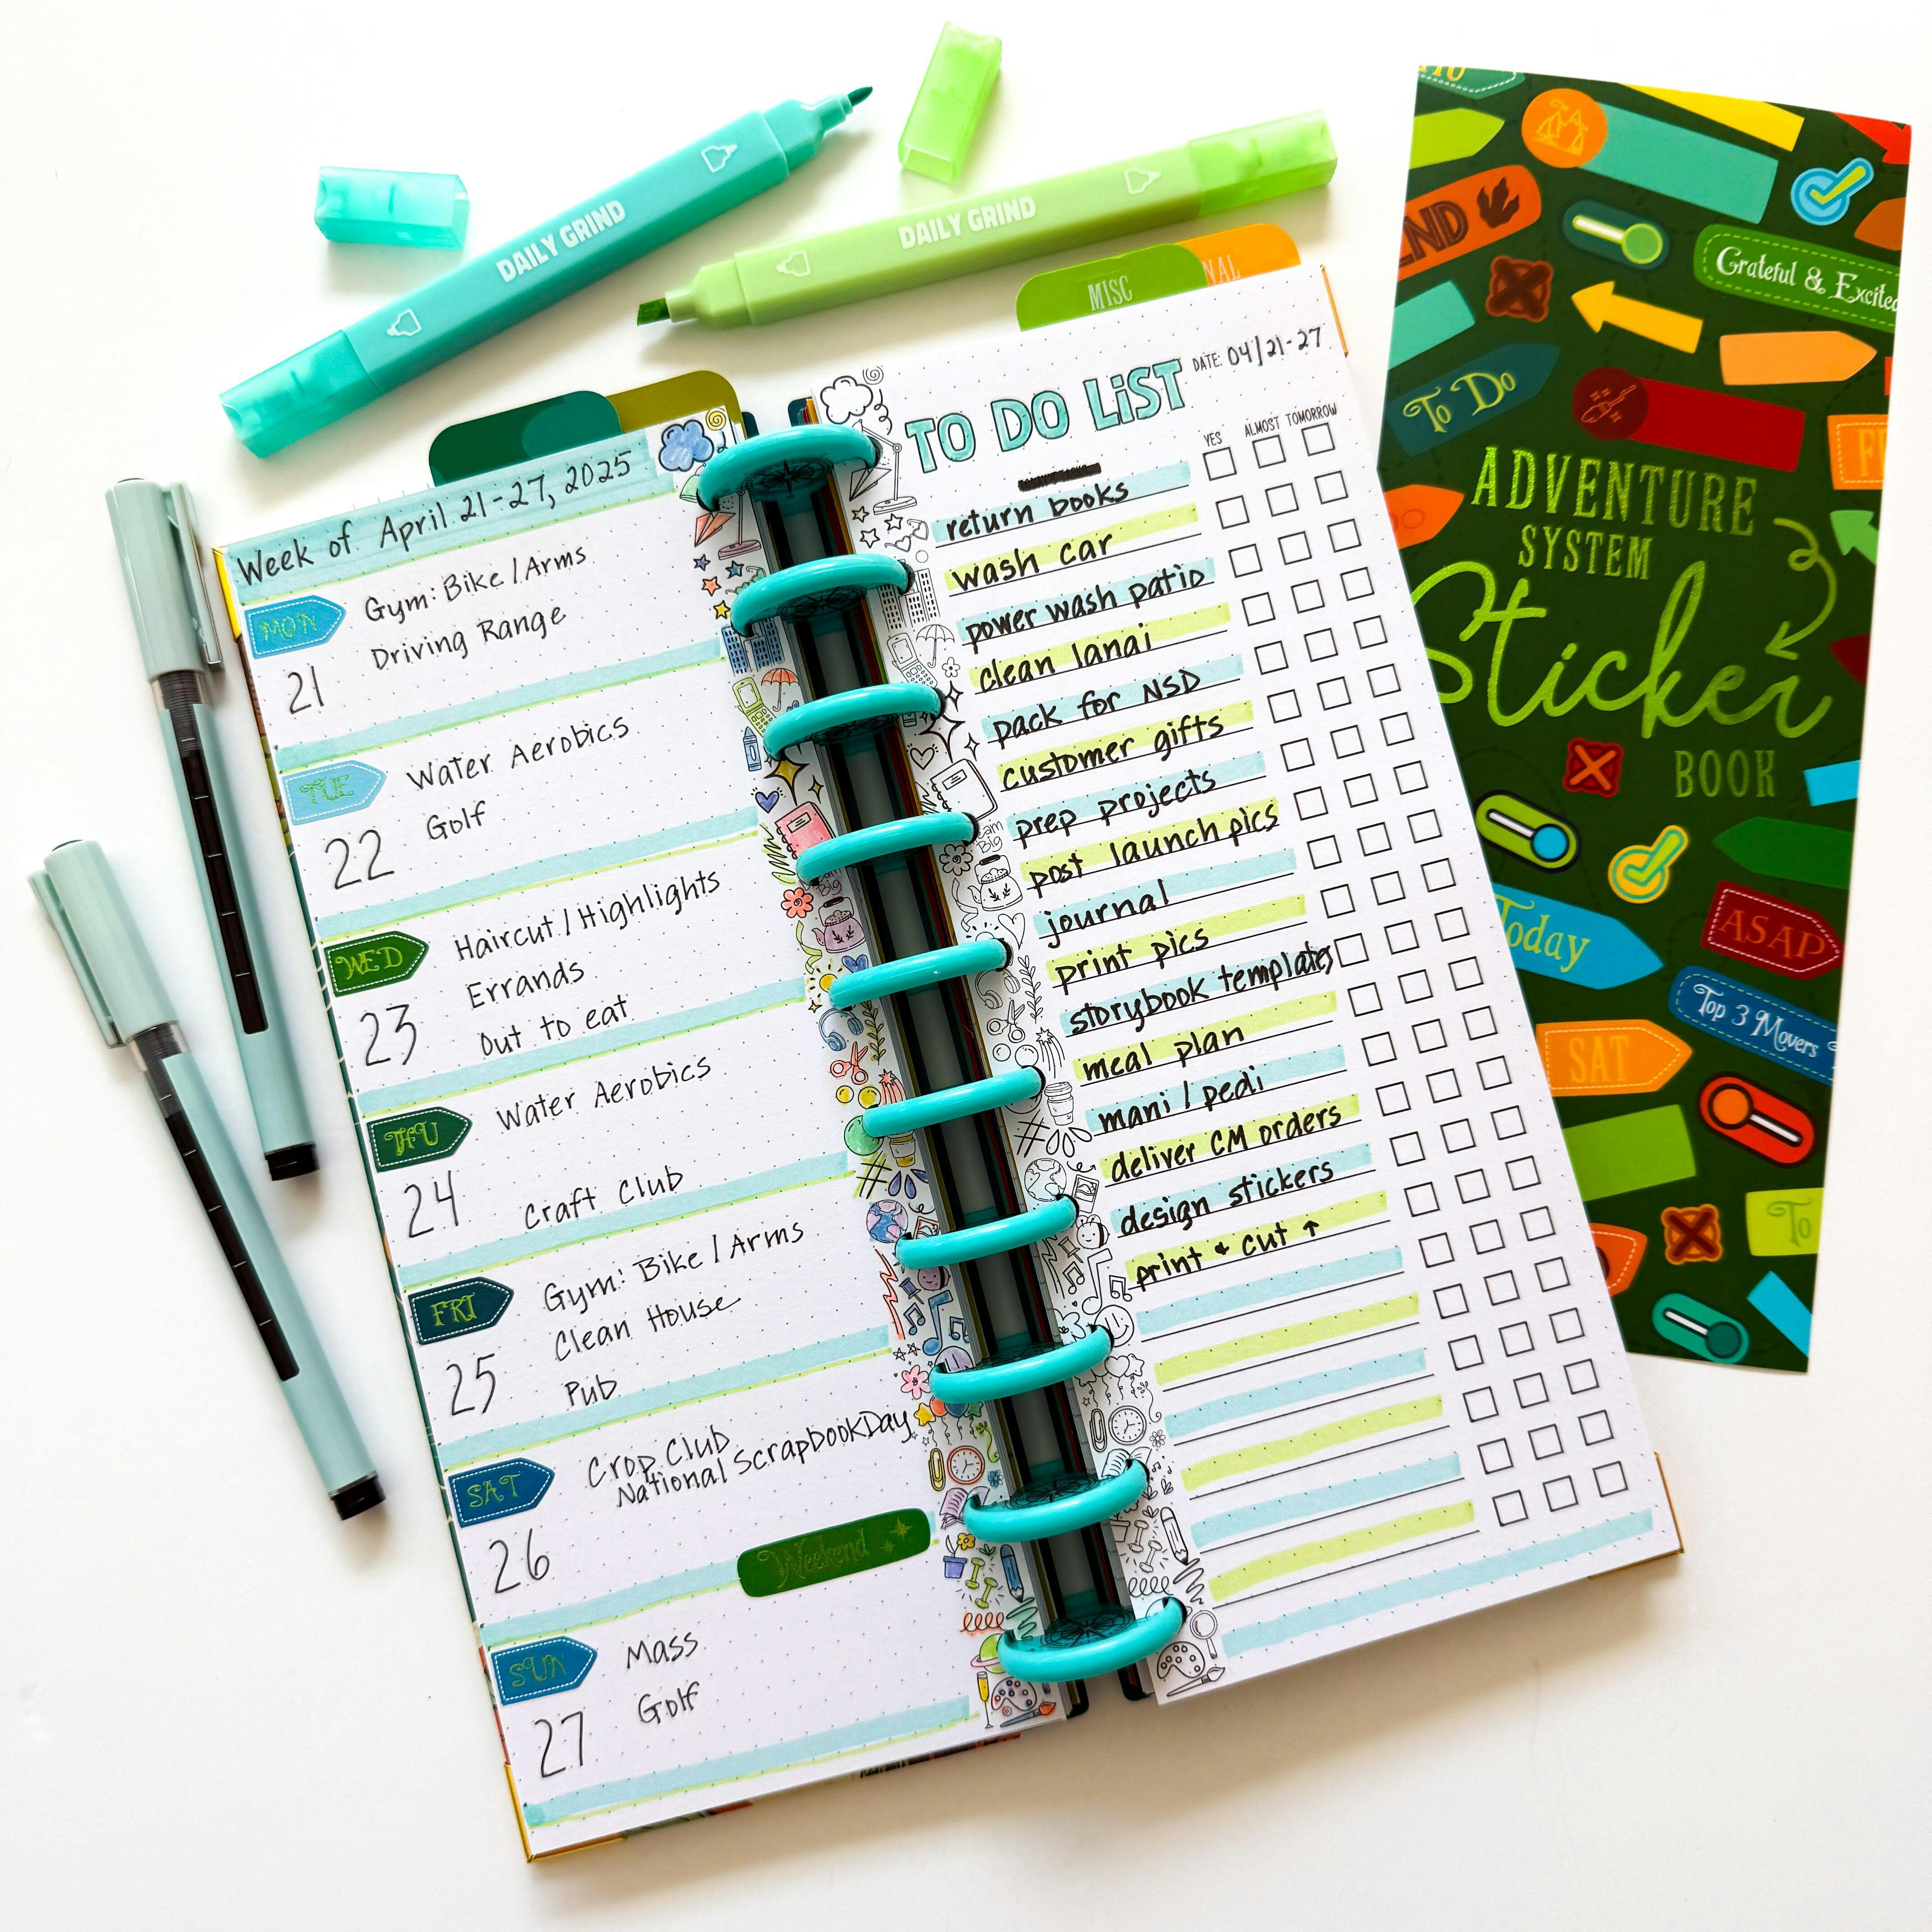 DAILY GRIND
DAILY GRIND
MISC
NAL
Week of April 21-27, 2025
MON
21
Gym: Bike / Arms
Driving Range
TUE
22
Water Aerobics
Golf
WED
23
Haircut / Highlights
Errands
Out to eat
THU
24
Water Aerobics
Craft Club
FRI
25
Gym: Bike / Arms
Clean House
Pub
SAT
26
Crop Club
National ScrapbookDay
Weekend
SUN
27
Mass
Golf
TO DO LiST
DATE: 04/21-27
YES ALMOST TOMORROW
return books
wash car
power wash patio
clean lanai
pack for NSD
customer gifts
prep projects
post launch pics
journal
print pics
storybook templates
meal plan
mani / pedi
deliver CM orders
design stickers
print + cut ↑
eam
Big
eam
Big
END
Grateful & Excited
To Do
ADVENTURE
SYSTEM
Sticker
BOOK
Today
ASAP
Top 3 Movers
SAT
To